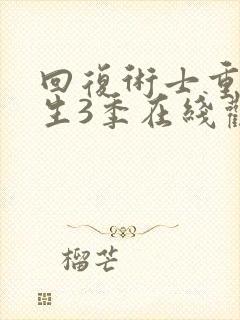 回復術士重
生3季在綫觀
榴芒